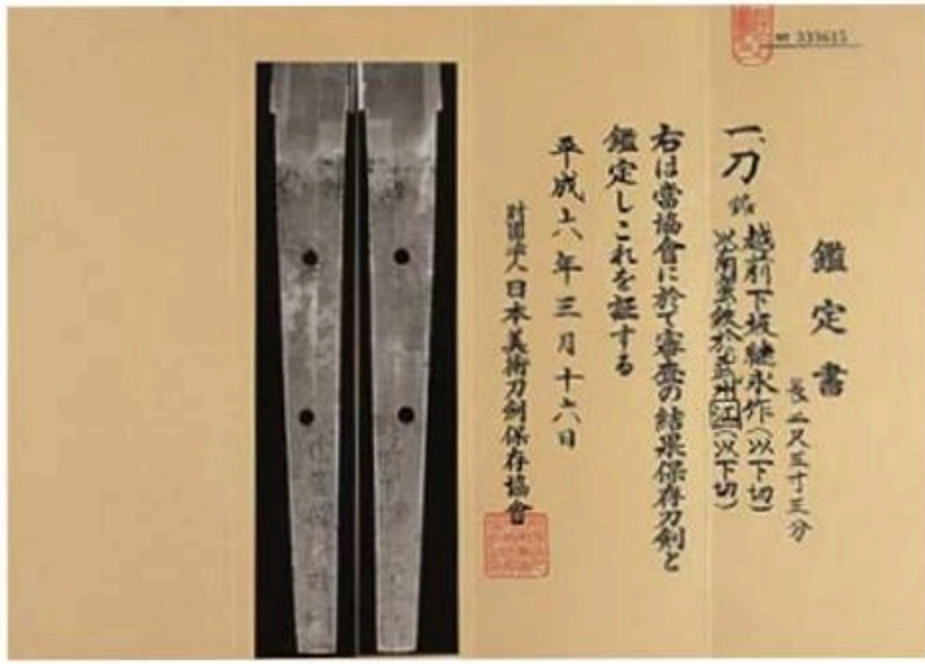 No 333615
鑑定書
一、刀 銘 越前下坂継永作(以下切)
以南蛮鉄於武州江(以下切)
長二尺三寸三分
右は當協會に於て審査の結果保存刀剣と
鑑定しこれを証する
平成十八年三月十六日
財団法人日本美術刀剣保存協會